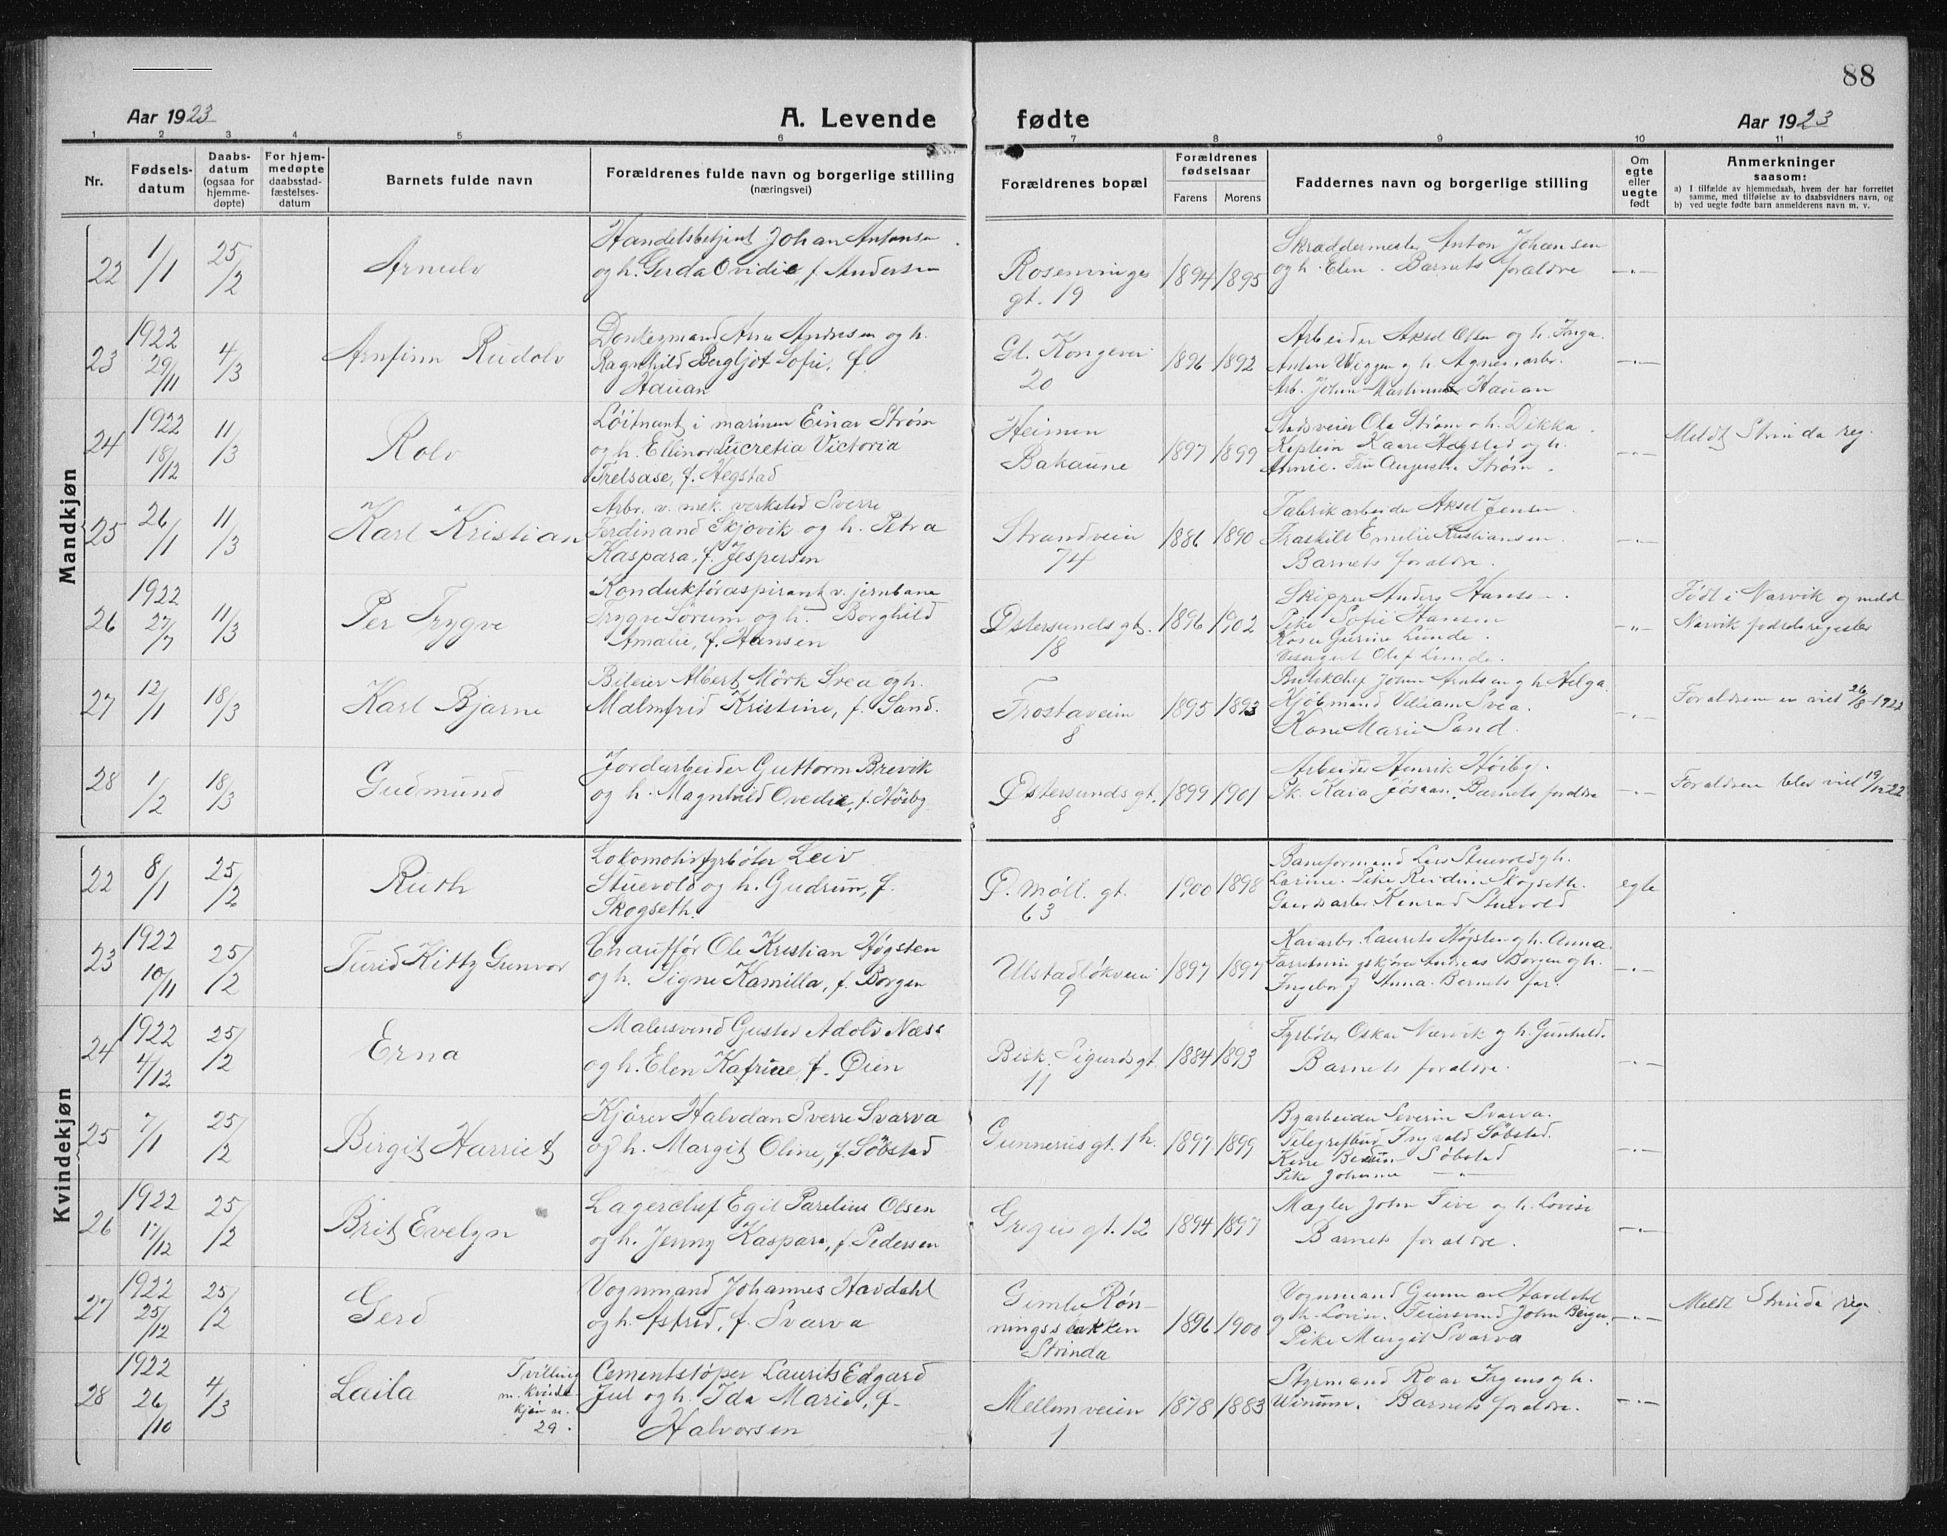 88
Aar 1923 A. Levende fødte Aar 1923
1 2 3 4 5 6 7 8 9 10 11
Nr.
Fødsels-
datum
Daabs-
datum
(ogsaa for
hjemme-
døpte)
For hjem-
medøpte
daabsstad-
fæstelses-
datum
Barnets fulde navn
Forældrenes fulde navn og borgerlige stilling
(næringsvei)
Forældrenes bopæl
Forældrenes
fødselsaar
Farens Morens
Faddernes navn og borgerlige stilling
Om
egte
eller
uegte
født
Anmerkninger
saasom:
a) I tilfælde av hjemmedaab, hvem der har forrettet
samme, med tilføielse av to daabsvidners navn, og
b) ved uegte fødte barn anmelderens navn m. v.
Mandkjøn
22 1/1 25/2 Arnulv
Handelsbetjent Johan Antonsen
og h. Gerda Ovidie, f. Andersen
Rosenvinges
gt. 19
1894 1895
Skræddermester Anton Johansen
og h. Elen. Barnets forældre
-"-
23 1922 29/11 4/3 Arnfinn Rudolv
Arne Andresen og h.
Ragnhild Bergljot Sofie, f.
Hauan
Gl. Kongevei
20
1896 1892
Arbeider Aksel Olsen og h. Inga.
Anton Wiggen og h. Agnes, arb.
Arb. Johan Martinus Hauan
-"-
24 1922 18/12 11/3 Rolv
Løitnant i marinen Einar Strøm
og h. Ellinor Lucretia Victoria
Trelsase, f. Hegstad
Heimen
Bakaune
1897 1899
Ole Strøm o h. Dikka.
Kaptein Kaare Hegstad og h.
Annie. Fru Augusta Strøm.
-"-
Meldt Strinda reg.
25 26/1 11/3 Karl Kristian
Arb. v. mek. verksted Sverre
Ferdinand Skjøvik og h. Petra
Kaspara, f. Jespersen
Strandveien
74
1886 1890
Fabrikarbeider Aksel Jensen
Fraskilt Emelie Kristiansen.
Barnets forældre.
-"-
26 1922 27/7 11/3 Per Trygve
Konduktøraspirant v. jernbane
Trygve Sørum og h. Borghild
Amalie, f. Hansen
Østersunds gt.
18
1896 1902
Skipper Anders Hansen.
Pike Sofie Hansen
Kone Gurine Lunde.
Olef Lunde.
-"-
Født i Narvik og meldt
Narvik fødselsregister
27 12/1 18/3 Karl Bjarne
Bileier Albert Mørk Svea og h.
Malmfrid Kristine, f. Sand.
Frostaveien
8
1895 1893
Butikchef Johan Arntsen og h. Helga.
Kjøbmand Villiam Svea.
Kone Marie Sand.
-"-
Forældrene er viet 26/8-1922
28 1/2 18/3 Gudmund
Jordarbeider Guttorm Brevik
og h. Magnhild Ovedie, f. Høiby
Østersunds gt.
8
1899 1901
Arbeider Henrik Høiby.
Pk. Kara Jøsaas. Barnets forældre
-"-
Forældrene blev viet 19/12 22
Kvindekjøn
22 8/1 25/2 Ruth
Lokomotivfyrbøter Leiv
Stuevold og h. Gudrun, f.
Skogseth.
Ø. Møll. gt.
63
1900 1898
Baneformand Lars Stuevold og h.
Larine. Pike Reidun Skogseth.
Gaardsarb. Konrad Stuevold
egte
23 1922 10/11 25/2 Turid Kitty Gunvor
Chauffør Ole Kristian Høgsten
og h. Signe Kamilla, f. Borgen
Ulstadløkveien
9
1897 1897
Kaiarb. Laurits Høgsten og h. Anna.
Andreas Borgen og h.
Ingeborg Anna. Barnets far.
-"-
24 1922 4/12 25/2 Erna
Malersvend Gustav Adolv Næss
og h. Elen Katrine, f. Øien
Bisk. Sigurds gt.
11
1884 1893
Fyrbøter Oskar Nervik og h. Gunhild.
Barnets forældre.
-"-
25 7/1 25/2 Birgit Harriet
Kjører Halvdan Sverre Svarva
og h. Margit Oline, f. Søbstad
Gunnerus gt. 1 h.
1897 1899
Byarbeider Severin Svarva.
Telegrafbud Ingvald Søbstad.
Søbstad
Pike Johanna -"-
-"-
26 1922 17/12 25/2 Brit Evelyn
Lagerchef Egil Parelius Olsen
og h. Jenny Kaspara, f. Pedersen
Gregus gt. 12
1894 1897
Mægler John Five og h. Lovise
Barnets forældre.
-"-
27 1922 25/12 25/2 Gerd
Vognmand Johannes Havdahl
og h. Astrid, f. Svarva
Gimle Røn-
ningsbakken
Strinda
1896 1900
Vognmand Gunnar Havdahl
og h. Lovise. Feiersvend John Berger.
Pike Margit Svarva
-"-
Meldt Strinda reg.
28 1922 26/10 4/3 Laila
Tvilling
m. kvinde-
kjøn nr.
29.
Cementstøper Laurits Edgard
Jul og h. Ida Marie, f.
Halvorsen
Mellemveien
1
1878 1883
Styrmand Roar Irgens og h.
Barnets forældre.
-"-